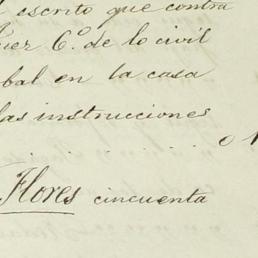 escrito que contra
6.º de lo civil
bal en la casa
las instrucciones
Flores cincuenta